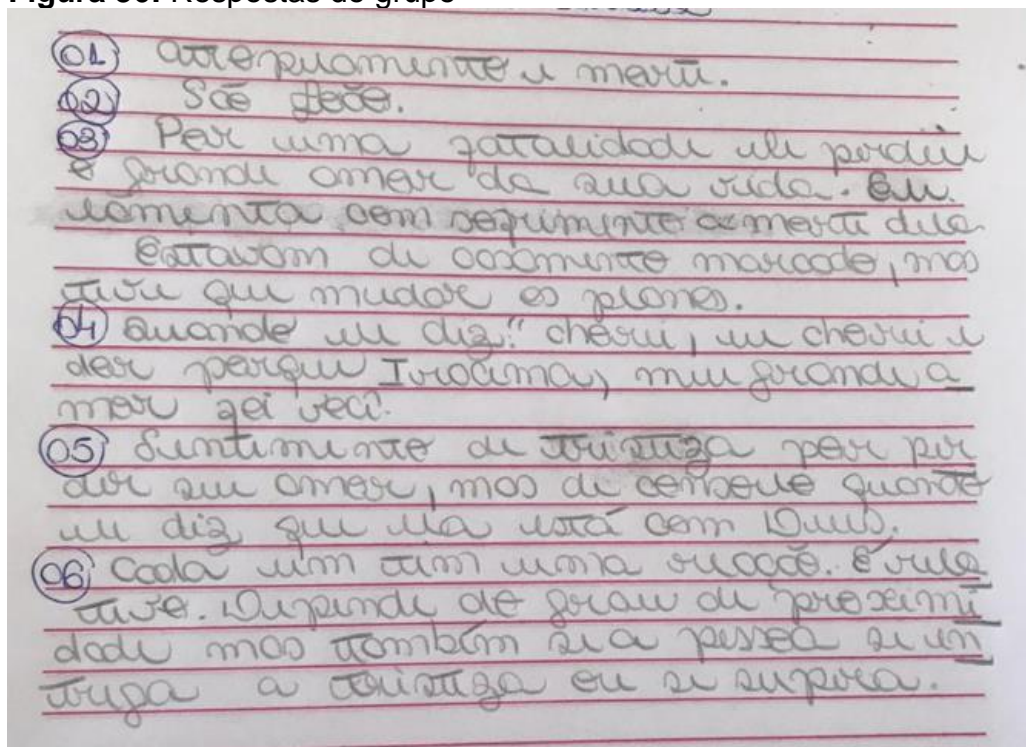 Figura 36: Respostas do grupo
01) Atropelamento e morte.
02) São João.
03) Por uma fatalidade ele perdeu
o grande amor da sua vida. Ele
lamenta com sofrimento a morte dela.
Estavam de casamento marcado, mas
teve que mudar os planos.
04) Quando ele diz: "chorei, eu chorei de
dor porque Iracema, meu grande a
mor foi você.
05) Sentimento de tristeza por per
der seu amor, mas de consolo quando
ele diz que ela está com Deus.
06) Cada um tem uma reação. É rela
tivo. Depende do grau de proximi
dade mas também se a pessoa se en
trega a tristeza ou se supera.